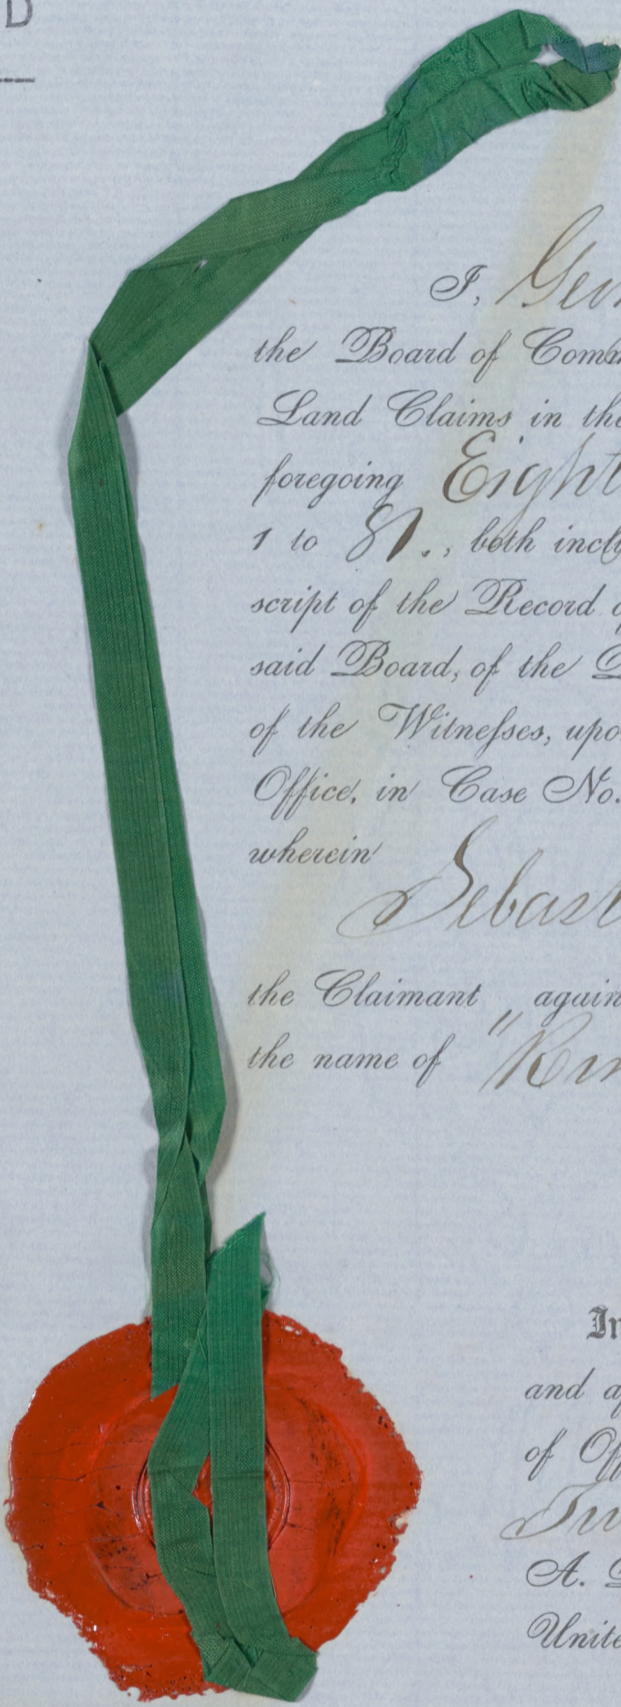 D
I, Geor
the Board of Comm
Land Claims in the
foregoing Eight
1 to 81., both inclu
script of the Record o
said Board, of the D
of the Witnesses, upo
Office, in Case No.
wherein
Sebast
the Claimant again
the name of "Rin
In
and af
of Off
A. D
Unite